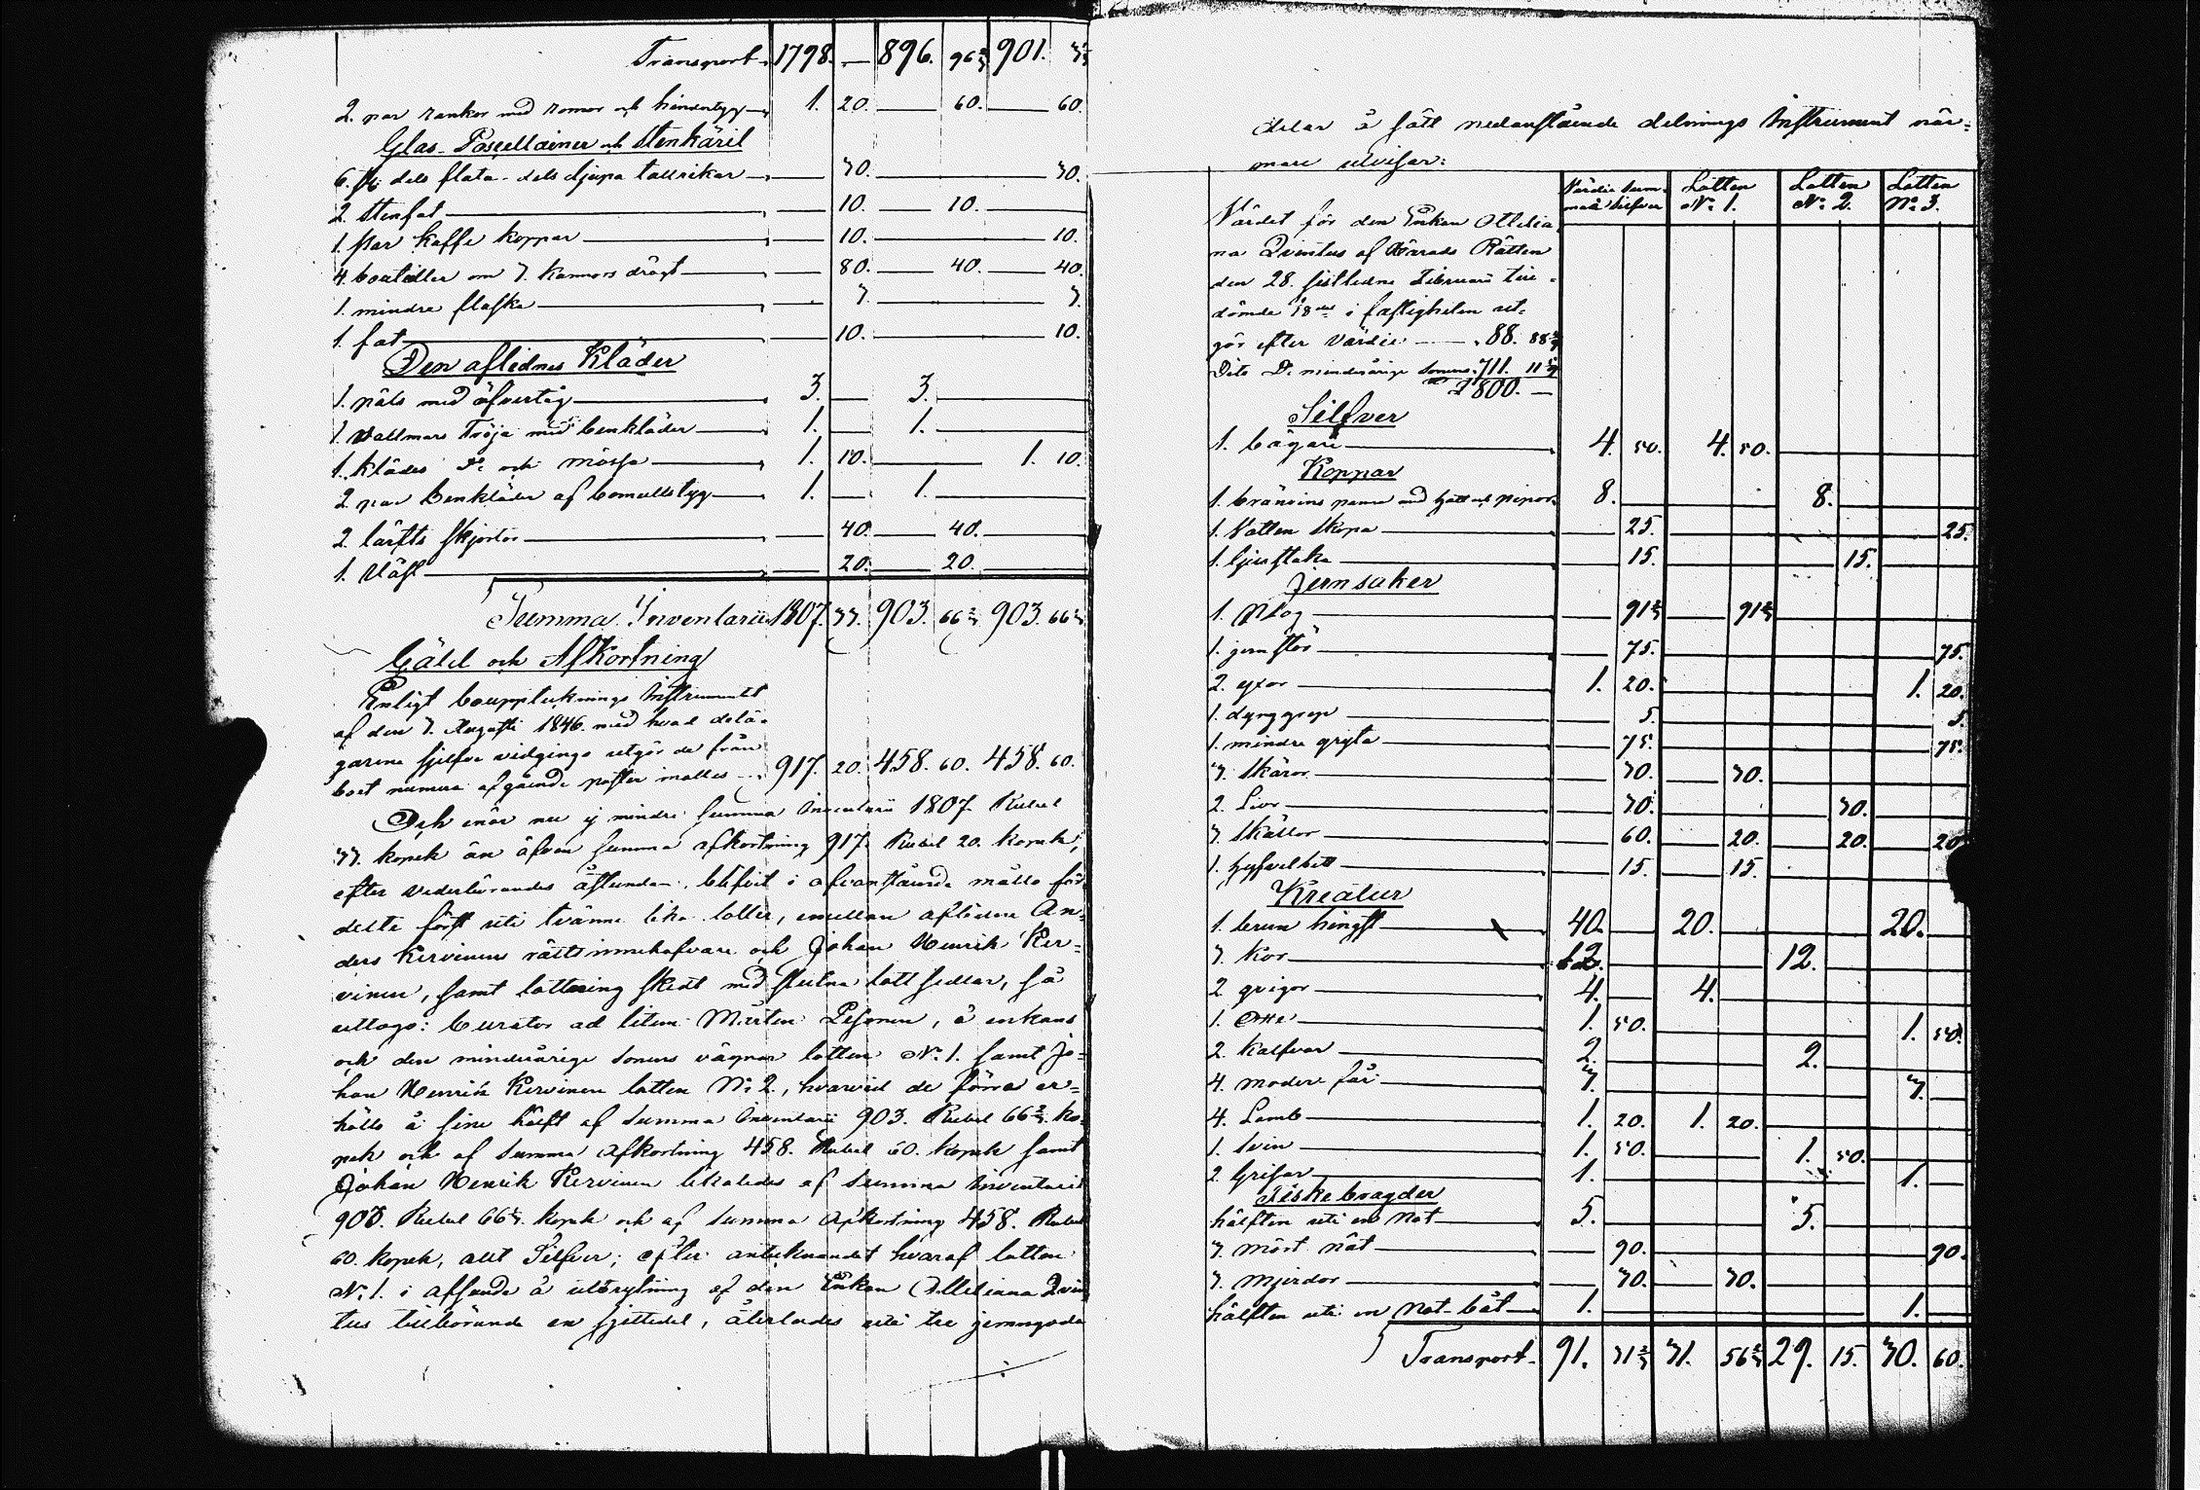 Transport 1798. — 896. 96⅔ 901. 3⅓
2. par rankor med romor och hindertyg 1. 20. — 60. — 60.
Glas- Poscellainer och Stenkäril
6. st. dels flata dels djupa tallrikar — 30. — 30.
2. Stenfat — 10. — 10.
1. Par kaffe koppar — 10. — 10.
4. bouteller om 3. kannors drägt — 80. — 40. — 40.
1. mindre flaska — 3. — 3.
1. fat — 10. — 10.
Den aflednes Kläder
1. päls med öfvertåg 3. — 3.
1. Vallmars Tröja med benkläder 1. — 1.
1. klädes D:o och mössa 1. 10. — 1. 10.
2. par Benkläder af bomullstyg 1. — 1.
2. lärfts skjortor — 40. — 40.
1. Väst — 20. — 20.
Summa Inventarii 1807. 33. 903. 66⅔ 903. 66⅓
Gäld och Afkortning
Enligt bouppteknings Instrumentet
af den 7. Augusti 1846. med hvad delä-
garena sjelfva vidgingo utgör de från
boet numera afgående poster inalles 917. 20. 458. 60. 458. 60.
Och enär nu ej mindre summa Inventarii 1807. Rubel
33. kopek än äfven summa afkortning 917. Rubel 20. kopek,
efter vederbörandes åstundan blifvit i ofvanstående måtto för-
delte först uti tvänne lika lotter, emellan aflidne An-
ders Kervinens rättsinnehafvare och Johan Henrik Ker-
vinen, samt lottning skedt med slutna lottsedlar, så
uttogs: Curator ad litem Mårten Pesonen, å enkans
och den minderårige sonens vägnar lotten N:o 1. samt Jo-
han Henrik Kervinen lotten N:o 2., hvarvid de förra er-
hållo å sine hälft af summa Inventarii 903. Rubel 66⅔ ko-
pek och af summa afkortning 458. Rubel 60. kopek samt
Johan Henrik Kervinen likaledes af summa Inventarii
903. Rubel 66⅔ kopek och af summa Afkortning 458. Rubel
60. kopek, allt Silfver; efter anteknandet hvaraf lotten
N:o 1. i afseende å utbrytning af den Enkan Ottiliana Qvin-
tus tillhörande en sjettedel, återlades uti tre jemngoda
delar å sätt nedanstående delnings Instrument när-
mare utvisar:
Värdie Sum- Lotten Lotten Lotten
ma i Silfver N:o 1. N:o 2. N:o 3.
Värdet för den Enkan Ottilia-
na Qvintus af Härads Rätten
den 28. sistledne Februarii till-
dömde 18:del i fastigheten ut-
gör efter värdie — 88. 88⁸⁄₉
Dito D:o minderårige Sonens 711. 11¹⁄₉
800. —
Silfver
1. bägare 4. 50. 4. 50.
Koppar
1. brännvins panna med hatt och pipor 8. — 8.
1. Vatten skopa — 25. — 25.
1. ljusstaka — 15. — 15.
Jernsaker
1. Plog — 91⅔ — 91⅔
1. jernstör — 75. — 75.
2. yxor 1. 20. — 1. 20.
1. dynggrep — 5. — 5.
1. mindre gryta — 75. — 75.
3. skäror — 30. — 30.
2. Liar — 30. — 30.
3. skällor — 60. — 20. — 20. — 20.
1. hyfvelbett — 15. — 15.
Kreatur
1. brun hingst 40. — 20. — 20.
3. Kor 12. — 12.
2. qvigor 4. — 4.
1. Oxe 1. 50. — 1. 50.
2. kalfvar 2. — 2.
4. moder får 3. — 3.
4. Lamb 1. 20. 1. 20.
1. Svin 1. 50. — 1. 50.
2. Grisar 1. — 1.
Fiske bragder
hälften uti en Not 5. — 5.
3. mört nät — 90. — 90.
3. Mjerdor — 30. — 30.
hälften uti en Not-båt 1. — 1.
Transport 91. 31⅔ 31. 56⅔ 29. 15. 30. 60.